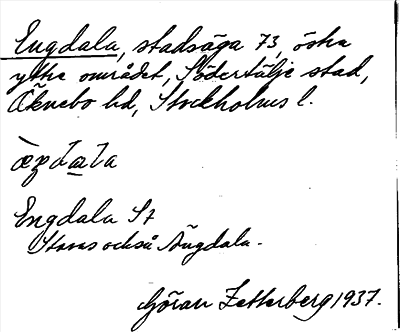 Engdala, stadsäga 73, östra
yttre området, Södertälje stad,
Öknebo hd, Stockholms l.
Engdala St
Stavas också Ängdala.
Göran Zetterberg 1937.